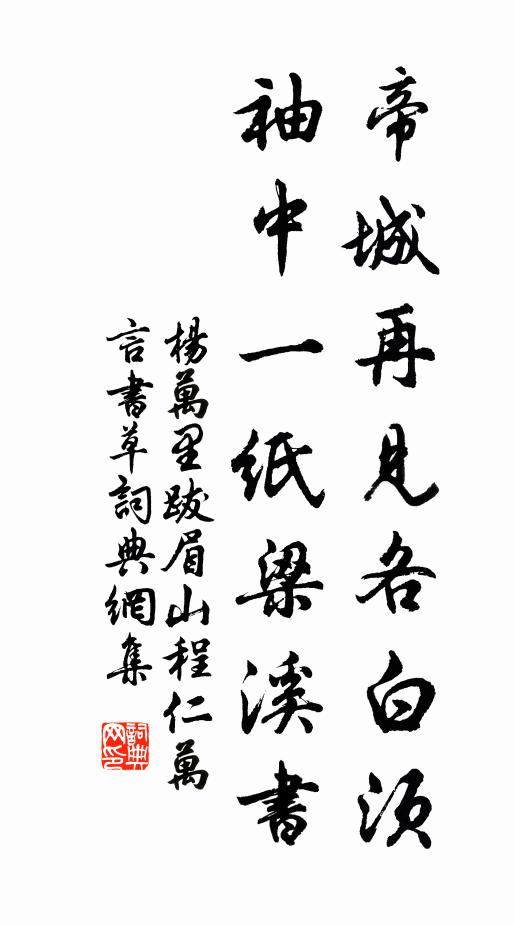 帝城再見各白須
袖中一紙梁溪書
楊萬里跋眉山程仁萬
言書草詞典網集
詞典
网印